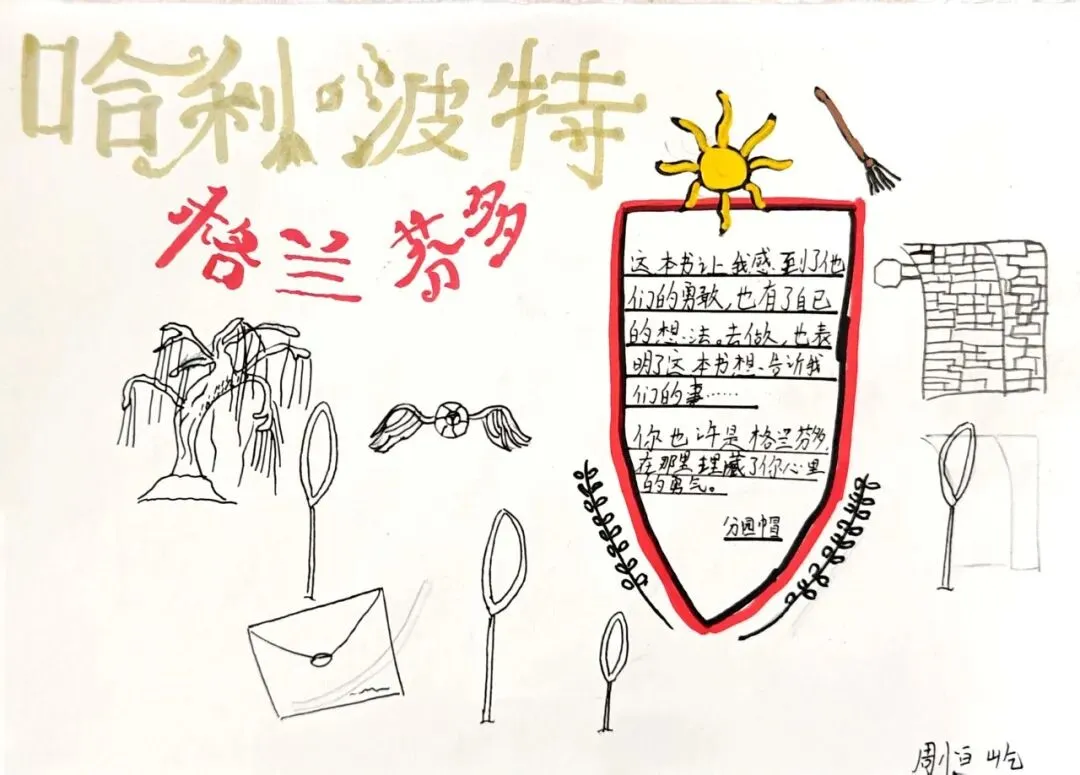 哈利·波特
格兰芬多
这本书让我感到了他
们的勇敢,也有了自己
的想法。去做人,也表
明了这本书想告诉我
们的事……
你也许是格兰芬多,
在那里埋藏了你心里
的勇气。
分园帽
周恒屹